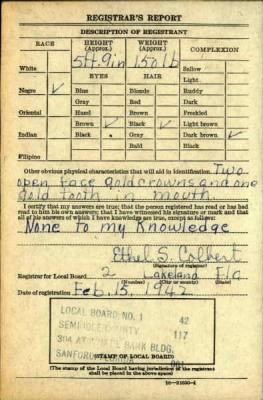 REGISTRAR'S REPORT
DESCRIPTION OF REGISTRANT
RACE HEIGHT (Approx.) WEIGHT (Approx.) COMPLEXION
5ft.9in 150 lb
White Sallow
EYES HAIR Light
Negro ✓ Blue Blonde Ruddy
Gray Red Dark
Oriental Hazel Brown Freckled
Brown ✓ Black ✓ Light brown
Indian Black Gray Dark brown ✓
Bald Black
Filipino
Other obvious physical characteristics that will aid in identification Two
open face gold crowns and one
gold tooth mouth
I certify that my answers are true; that the person registered has read or has had
read to him his own answers; that I have witnessed his signature or mark and that
all of his answers of which I have knowledge are true, except as follows:
None to my Knowledge
Ethel S. Colbert
(Signature of registrar)
Registrar for Local Board 2 Lakeland Fla
(Number) (City or county) (State)
Date of registration Feb. 15, 1942
LOCAL BOARD NO. 1 42
SEMINOLE COUNTY 117
304 BANK BLDG.
SANFORD, FLORIDA 001
(STAMP OF LOCAL BOARD)
(The stamp of the Local Board having jurisdiction of the registrant
shall be placed in the above space)